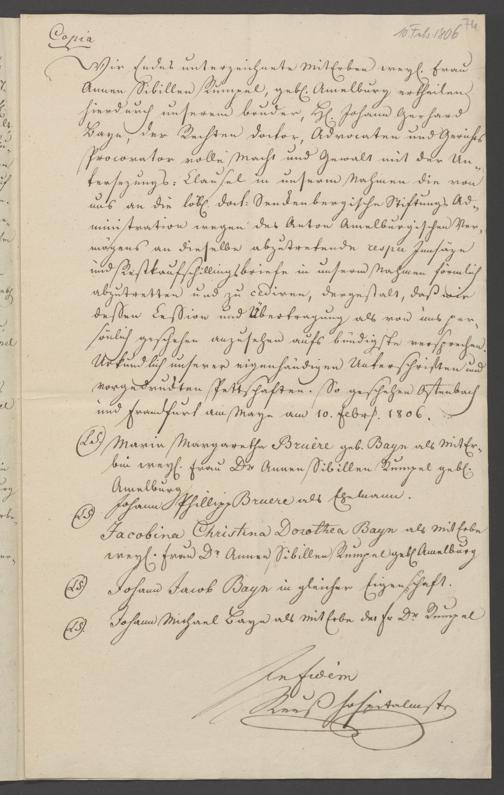 Copia
10 Feb. 1806
74
Wir Endes unterzeichnete MitErben weyl. Frau
Annen Sibillen Rumpel, gebl. Amelburg ertheilen
hierdurch unserem bruder, H. Johann Gerhard
Bayn, der Rechten Doctor, Advocaten und Gerichts
Procurator volle Macht und Gewalt mit der Un-
tersezungs: Clausel in unserm Nahmen die von
uns an die löbl. Doct: Senckenbergische Stiftungs Ad-
ministration wegen des Anton Amelburgischen Ver-
mögens an dieselbe abzutretende resp. Innsäze
und Restkaufschillingsbriefe in unserm Nahmen förmlich
abzutretten und zu cediren, dergestalt, daß wir
dessen Cession und Übertragung als von uns per-
sönlich geschehen anzusehen aufs bündigste versprechen.
Urkundlich unserer eigenhändigen Unterschriften und
vorgedruckten Pettschaften. So geschehen Offenbach
und Franckfurt am Mayn am 10. Febr. 1806.
(LS) Maria Margaretha Bruère geb. Bayn als MitEr-
bin weyl. Frau Dr Annen Sibillen Rumpel gebl.
Amelburg
(LS) Johann Phillipp Bruere als Ehemann.
Jacobina Christina Dorothea Bayn als MitErbe
weyl. Frau Dr Annen Sibillen Rumpel gebl. Amelburg
(LS) Johann Jacob Bayn in gleicher Eigenschaft.
(LS) Johann Michael Bayn als MitErbe der Fr Dr Rumpel
In fidem
Reuß Hospitalmstr